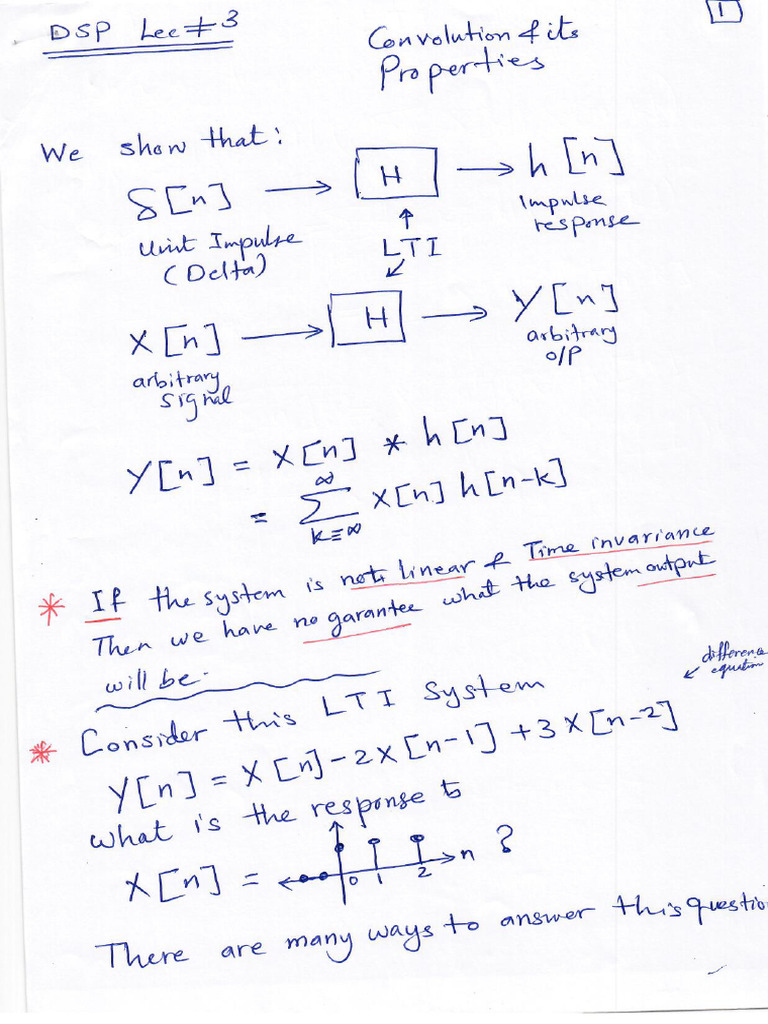 DSP Lec #3
1
Convolution & its
Properties
We show that:
δ[n] → H → h[n]
Unit Impulse
(Delta)
Impulse
response
LTI
X[n] → H → Y[n]
arbitrary
Signal
arbitrary
O/P
Y[n] = X[n] * h[n]
= ∑ X[n] h[n-k]
∞
k=∞
* If the system is not linear & Time invariance
Then we have no garantee what the system output
will be.
* Consider this LTI system
difference
equation
Y[n] = X[n] - 2X[n-1] + 3X[n-2]
what is the response to
X[n] = n ?
0 1 2
There are many ways to answer this questio